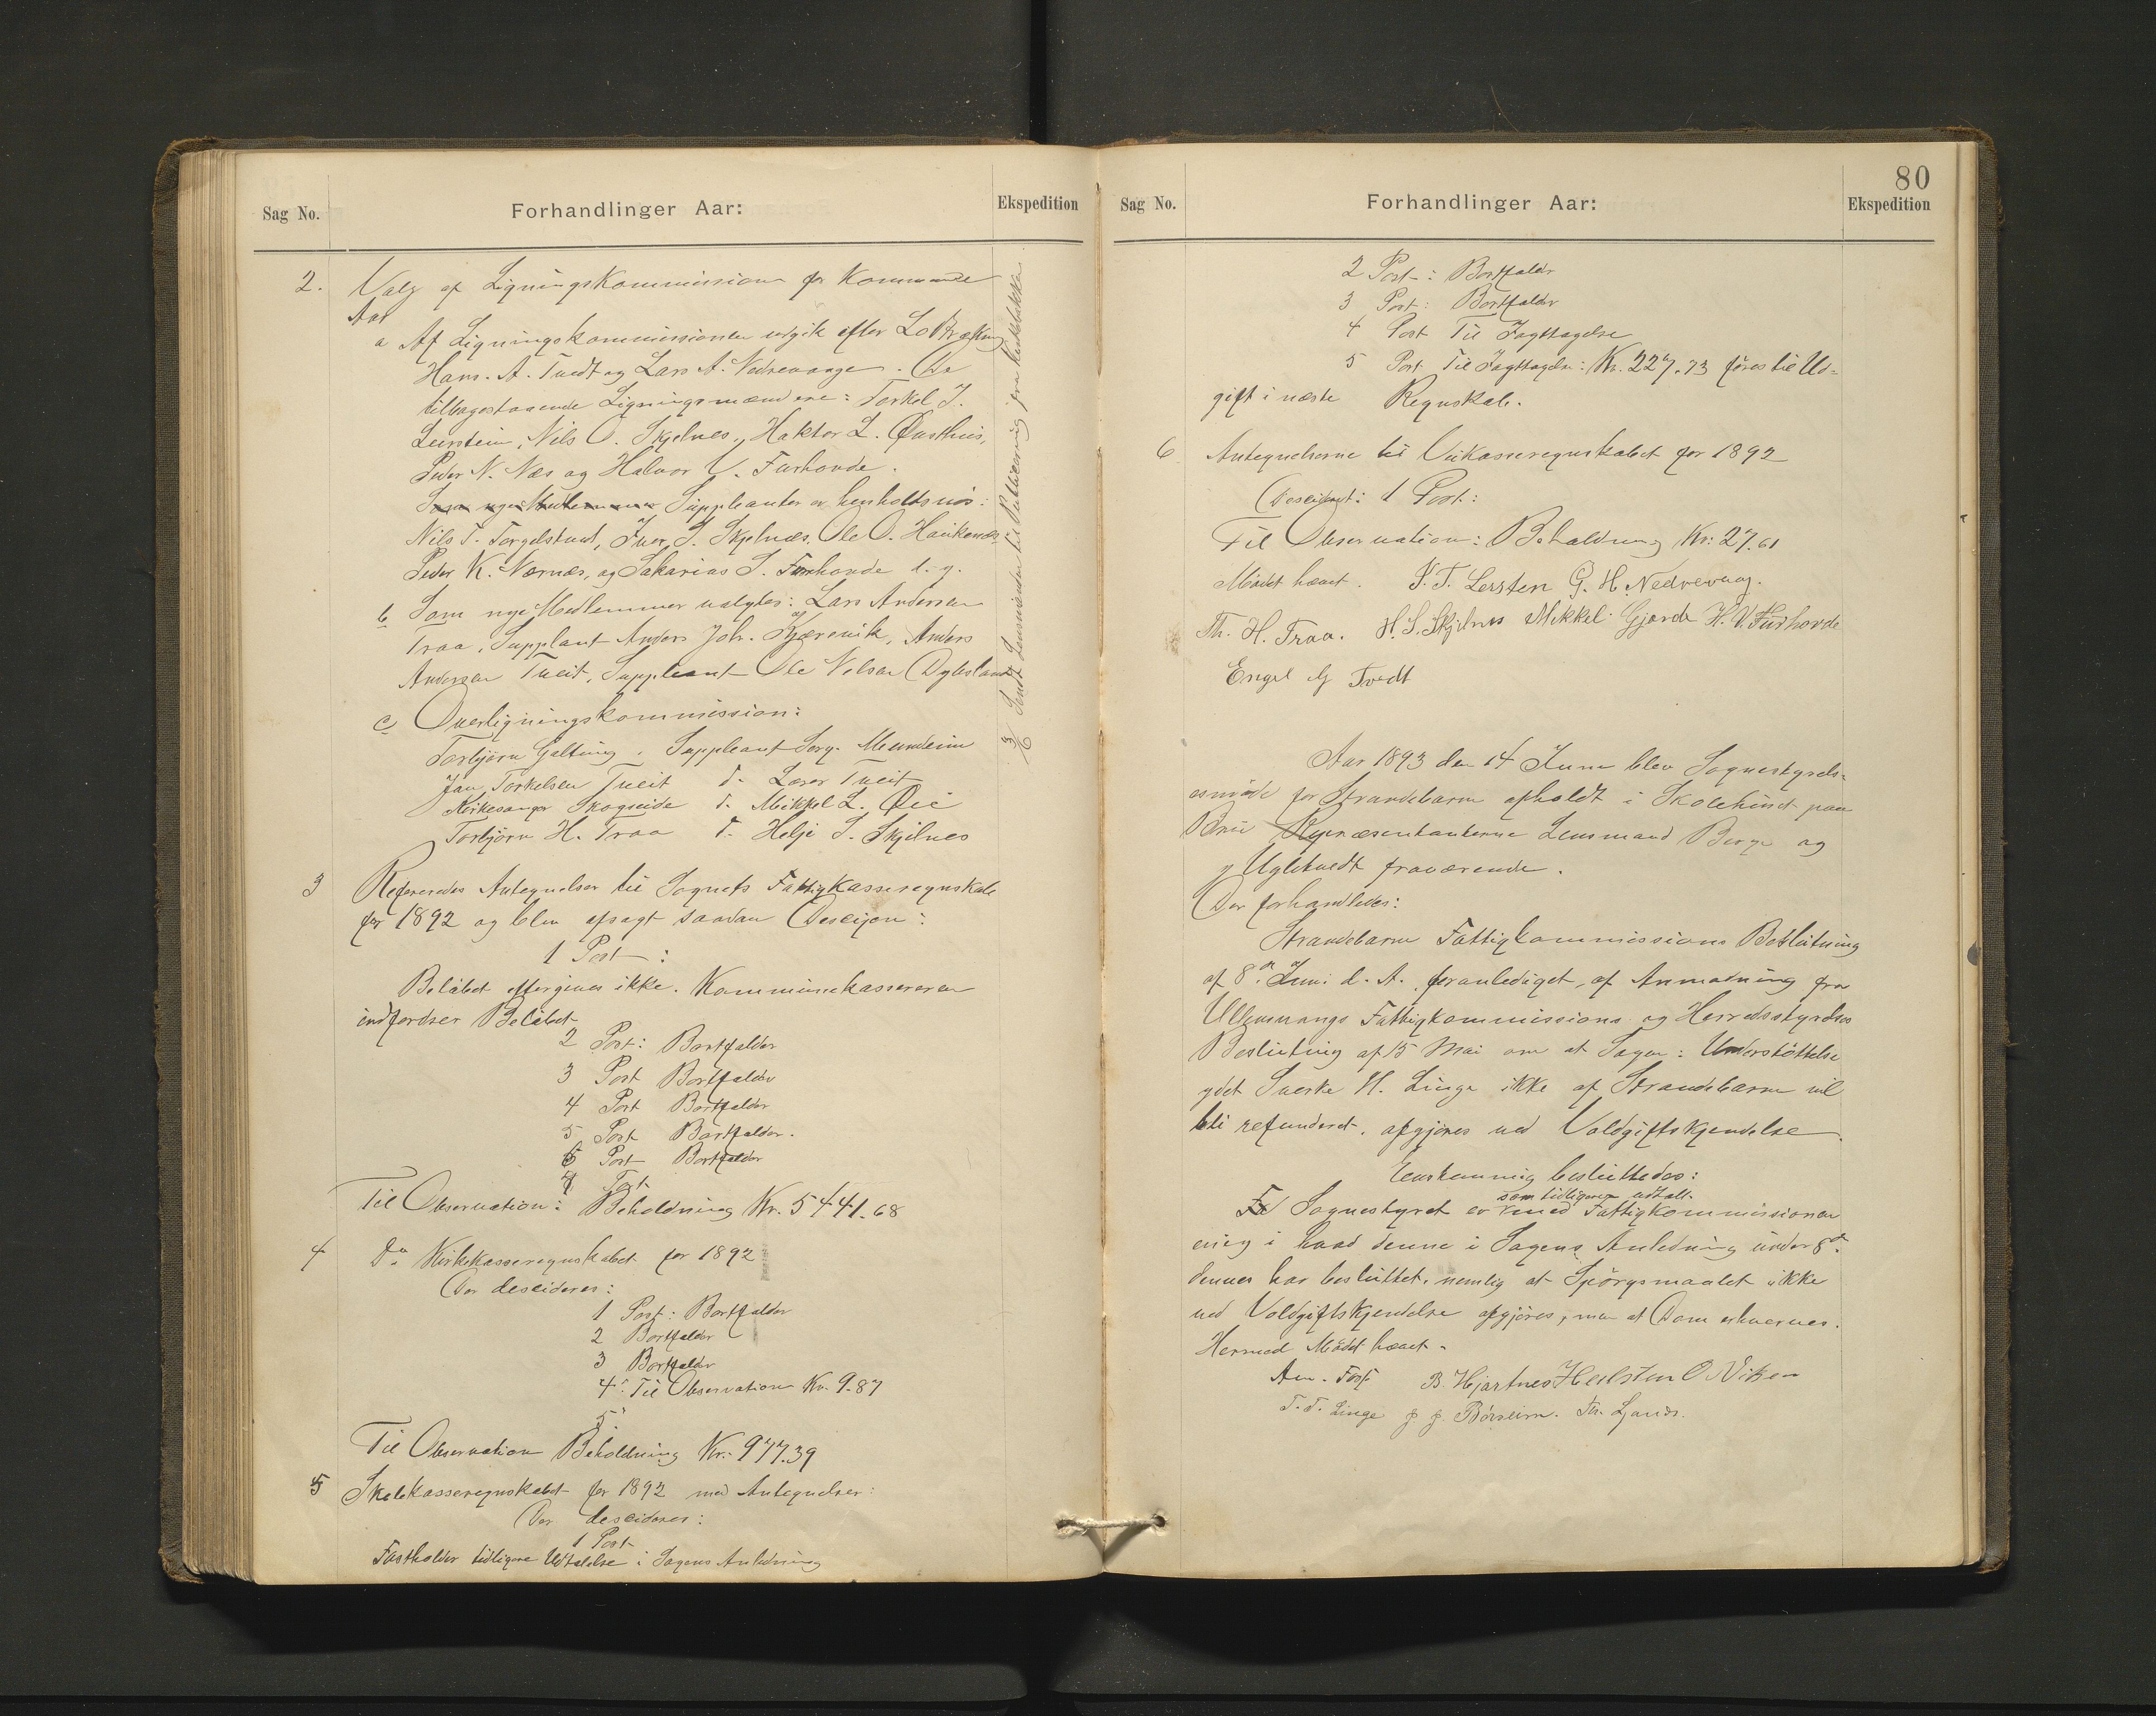 Sag No.
Forhandlinger Aar:
Ekspedition
2. Valg af Ligningskommission for kommende
Aar
a Af Ligningskommissionen udgik efter Lodtrækning
Hans. A. Tvedt og Lars A. Nedrevaage. De
tilbagestaaende Ligningsmændene: Torkel J.
Leirstein, Nils O. Skjelnes, Haktor L. Øusthus,
Peder N. Næs og Halvor V. Furhovde.
Som nye Medlemmer Suppleanter er henholdsvis:
Nils T. Torgelstveit, Iver J. Skjelnæs, Ole O. Haukenæs
Peder K. Nærnæs, og Sakarias S. Furhovde d. y.
b Som nye Medlemmer valgtes: Lars Andersen
Traa, Supplant Anders Joh. Kjærevik, og Anders
Andersen Tveit, Suppleant Ole Nelsen Dybsland
c Overligningskommission:
Torbjørn Galtung. Suppleant Sorg. Mundheim
Jan Torkelsen Tveit d. Lærer Tveit
Kirkesanger Skogseide d. Mikkel L. Øie
Torbjørn H. Traa d. Helje S. Skjelnes
3/6 Sendt Lensmanden til Publicering fra Kirkebakke
3 Refereredes Antegnelser til Sognets Fattigkasseregnskab
for 1892 og blev afsagt saadan Descijon:
1 Post:
Beløbet eftergives ikke. Kommunekassereren
indfordrer Beløbet
2 Post: Bortfalder
3 Post Bortfalder
4 Post Bortfalder
5 Post Bortfalder.
6 Post Bortfalder
7 Post
Til Observation: Beholdning Kr. 5441.68
4 Do Kirkekasseregnskabet for 1892
Der descideres:
1 Post: Bortfalder
2 Bortfalder
3 Bortfalder
4: Til Observation Kr. 9.87
5:
Til Observation Beholdning Kr. 977.39
5 Skolekasseregnskabet for 1892 med Antegnelser:
Der descideres:
1 Post
Fastholder tidligere Udtalelse i Sagens Anledning
80
Sag No.
Forhandlinger Aar:
Ekspedition
2 Post: Bortfalder
3 Post: Bortfalder
4 Post Til Iagttagelse
5 Post Til Iagttagelse: Kr. 227.73 føres til Ud-
gift i næste Regnskab.
6 Antegnelserne til Veikasseregnskabet for 1892
1 Post:
Til Observation: Beholdning Kr: 27.61
Mødet hævet. T. T. Lersten G. H. Nedrevaag.
Th. H. Traa. H. S. Skjelnes Mikkel Gjerde H. V. Furhovde
Engel G Tvedt
Aar 1893 den 14 Juni blev Sognestyrels-
esmøde for Strandebarm afholdt i Skolehuset paa
Bru Repræsentanterne Lensmand Berge og
Ugletvedt fraværende.
Der forhandledes:
Strandebarm Fattigkommissions Beslutning
af 8de Juni d. A. foranlediget af Anmodning fra
Ullensvangs Fattigkommissions og Herredsstyrelses
Beslutning af 15 Mai om at Sagen: Understøttelse
ydet Sverke H. Linge ikke af Strandebarm vil
bli refunderet, afgjøres ved Voldgiftskjendelse.
Eenstemmig besluttedes:
som tidligere udtalt
Sognestyret er med Fattigkommissionen
enig i hvad denne i Sagens Anledning under 8de
dennes har besluttet, nemlig at Spørgsmaalet ikke
ved Voldgiftskjendelse afgjøres, men at Dom erhverves.
Hermed Mødet hævet.
B. Hjartnes Heilsten O Viken
T. T. Linge J J. Børseim. Th. Ljones.